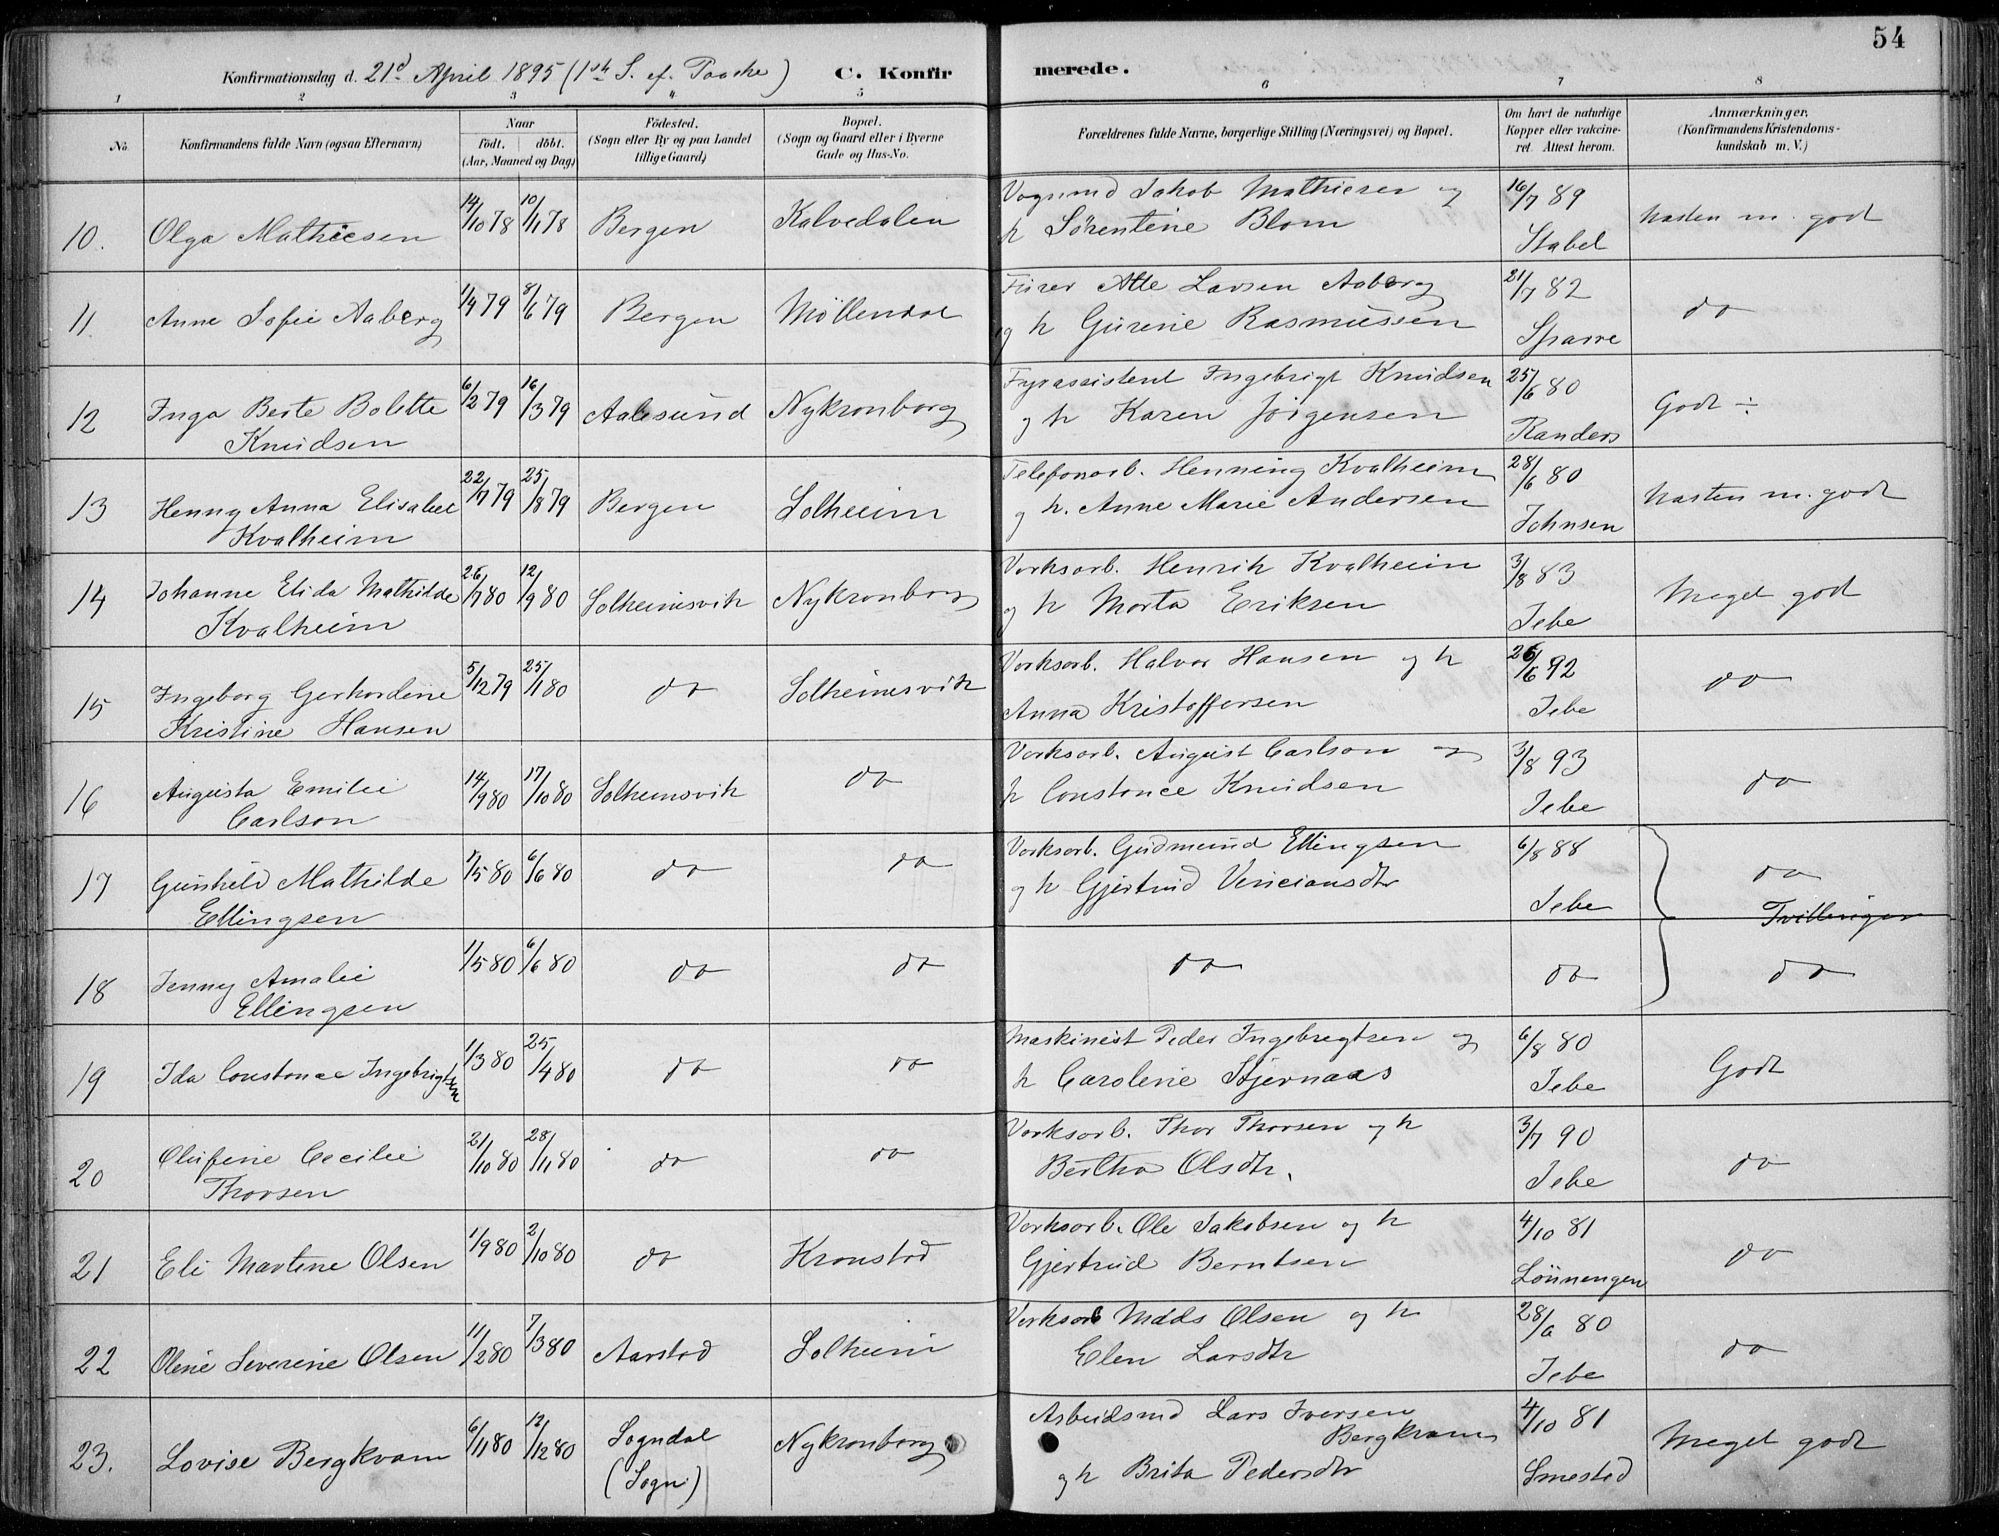 54
Konfirmationsdag d. 21d April 1895 (1ste S. ef. Paaske) C. Konfirmerede.
1 2 3 4 5 6 7 8
No. Konfirmandens fulde Navn (ogsaa Efternavn) Naar født. døbt. (Aar, Maaned og Dag) Fødested. (Sogn eller By og paa Landet tillige Gaard) Bopæl. (Sogn og Gaard eller i Byerne Gade og Hus-No. Forældrenes fulde Navne, borgerlige Stilling (Næringsvei) og Bopæl. Om havt de naturlige Kopper eller vakcineret. Attest herom. Anmærkninger. (Konfirmandens Kristendomskundskab m. V.)
10. Olga Mathiesen 14/10 78 10/11 78 Bergen Kalvedalen Vognmd Jakob Mathiesen og h Sørentine Blom 16/7 89 Stabel næsten m. godt
11. Anne Sofie Aaberg 1/4 79 8/6 79 Bergen Møllendal Fürer Atle Larsen Aaberg og h Gurine Rasmussen 21/7 82 Sparre do
12 Inga Berte Bolette Knudsen 6/2 79 16/3 79 Aalesund Nykronborg Fyrassistent Ingebrigt Knudsen og h Karen Jørgensen 25/6 80 Randers Godt ÷
13 Henny Anna Elisabet Kvalheim 22/7 79 25/8 79 Bergen Solheim Telefonarb. Henning Kvalheim og h. Anne Marie Andersen 28/6 80 Johnsen næsten m. godt
14 Johanne Elida Mathilde Kvalheim 26/7 80 12/9 80 Solheimsvik Nykronborg Værksarb. Henrik Kvalheim og h Marta Eriksen 3/8 83 Jebe Meget godt
15 Ingeborg Gerhardine Kristine Hansen 5/12 79 25/1 80 do Solheimsvik Værksarb. Halvor Hansen og h Anna Kristoffersen 26/6 92 Jebe do
16 Augusta Emilie Carlson 14/9 80 17/10 80 Solheimsvik do Værksarb. August Carlson og h Constance Knudsen 3/8 93 Jebe do
17 Gunhild Mathilde Ellingsen 1/5 80 6/6 80 do do Værksarb. Gudmund Ellingsen og h Gjertrud Vinciansdtr 6/8 88 Jebe do
Tvillinger
18 Jenny Amalie Ellingsen 1/5 80 6/6 80 do do do do do
19 Ida Constance Ingebrigtsen 1/3 80 25/4 80 do do Maskinist Peder Ingebregtsen og h Caroline Stjernaas 6/8 80 Jebe Godt
20 Olufine Cecilie Thorsen 21/10 80 28/11 80 do do Værksarb. Thor Thorsen og h Bertha Olsdtr. 3/7 90 Jebe do
21 Eli Martine Olsen 1/9 80 2/10 80 do Kronstad Værksarb. Ole Jakobsen og h Gjertrud Berntsen 4/10 81 Lønnengen do
22 Oline Severine Olsen 11/2 80 7/3 80 Aarstad Solheim Værksarb Mads Olsen og h Elen Larsdtr 28/6 80 Jebe do
23. Lovise Bergkvam 6/11 80 12/12 80 Sogndal (Sogn) Nykronborg Arbeidsmd Lars Iversen Bergkvam og h Brita Pedersdtr 4/10 81 Smestad Meget godt